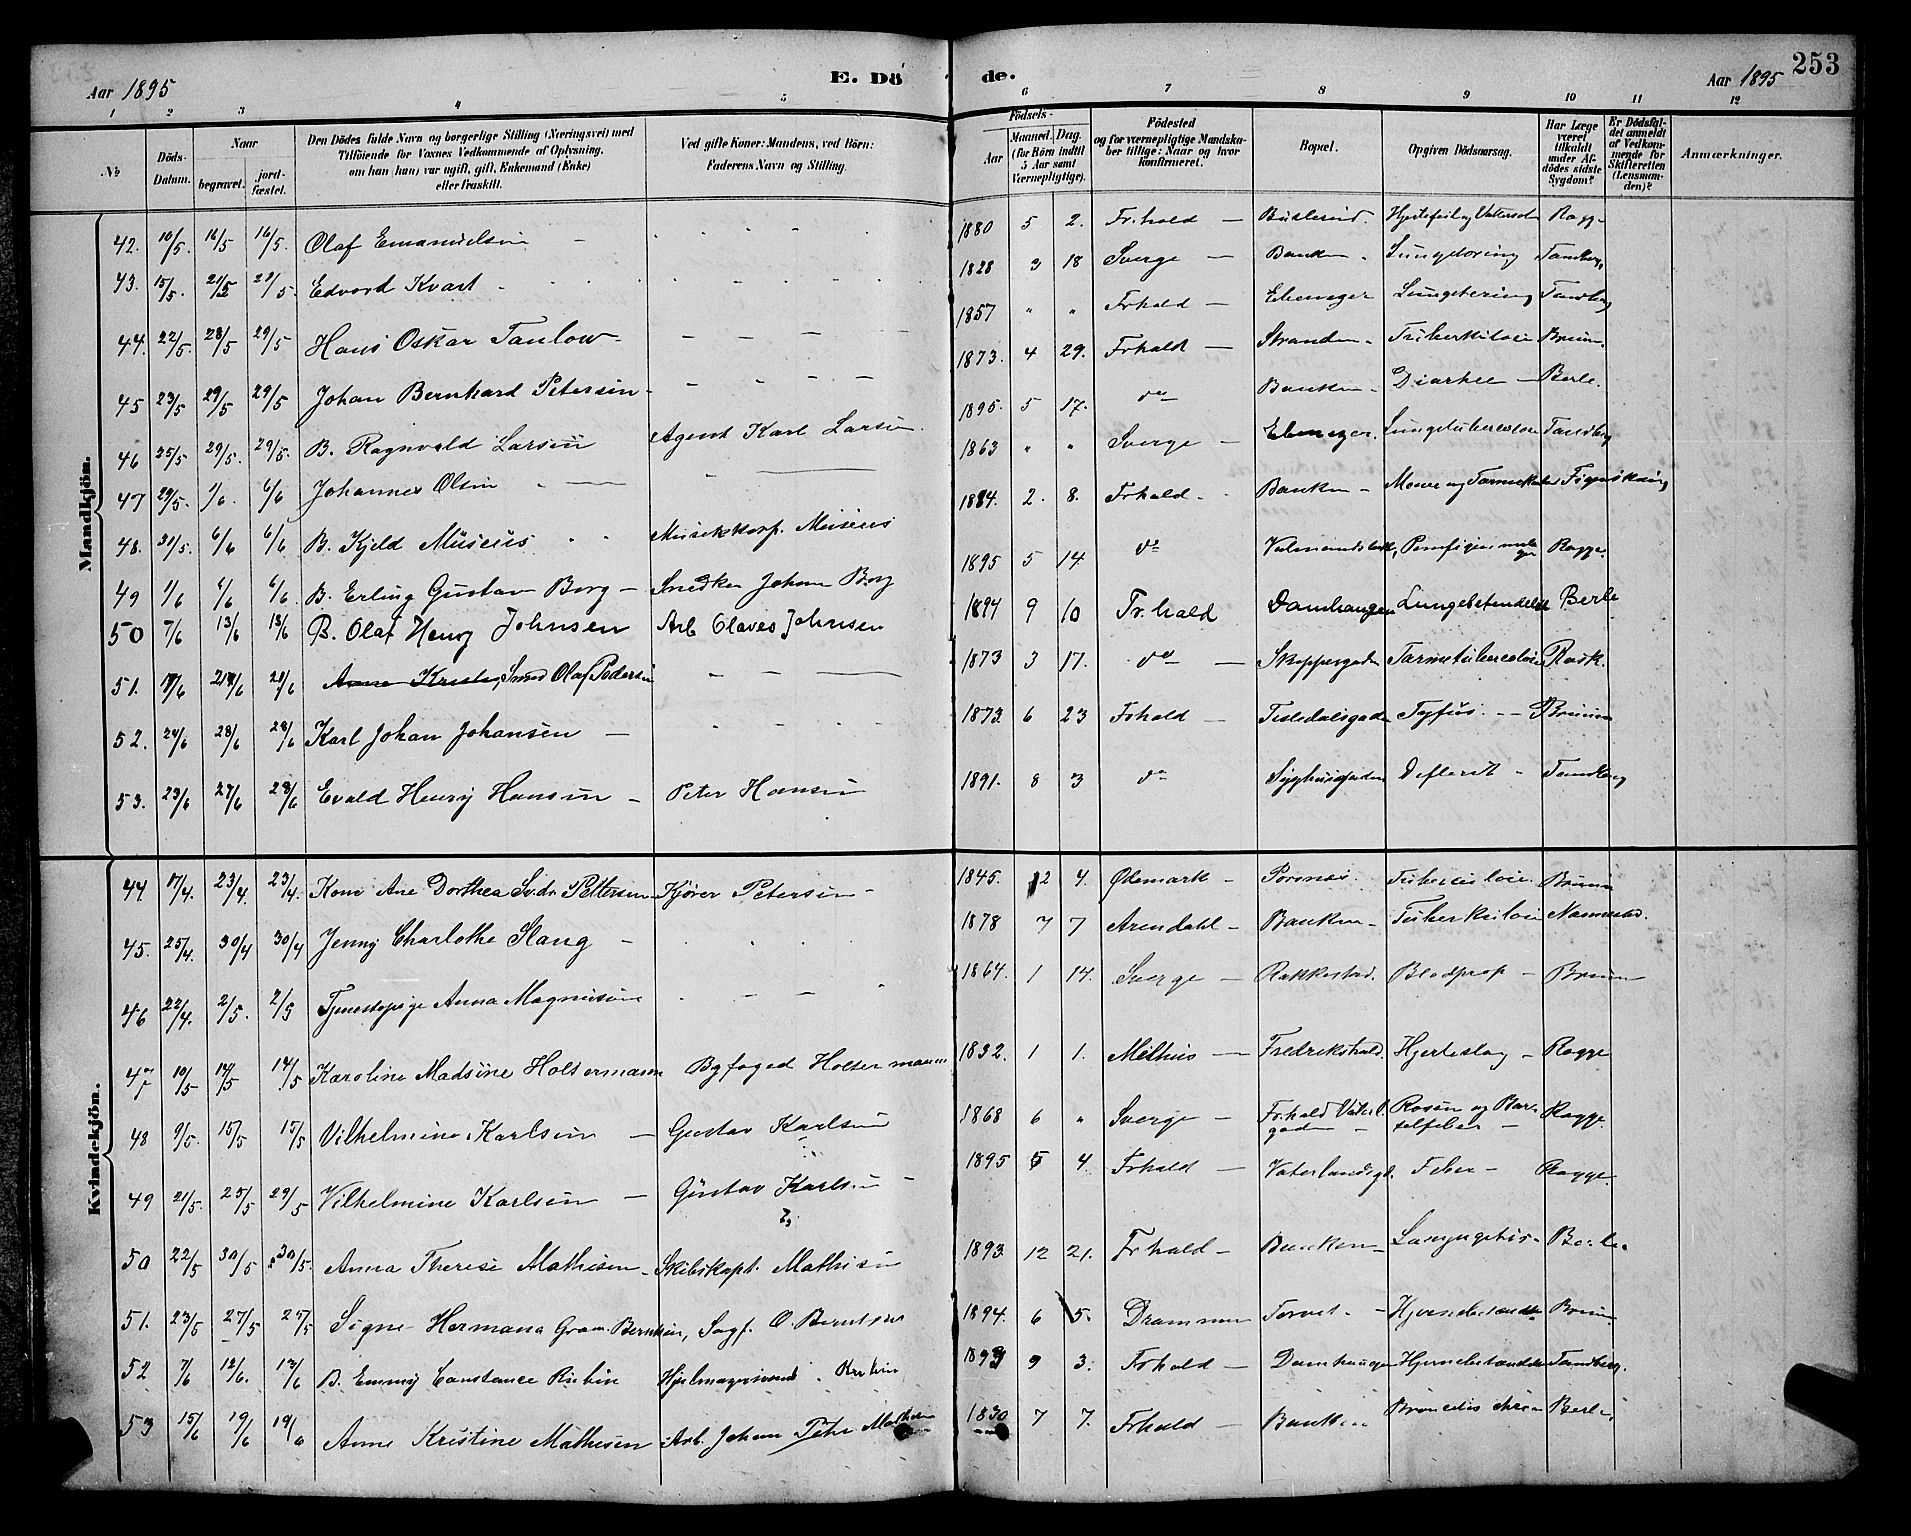 253
Aar 1895 E. Dö de. Aar 1895
1 2 3 4 5 6 7 8 9 10 11 12
№ Döds-Datum. Naar begravet. jord-fæstet. Den Dödes fulde Navn og borgerlige Stilling (Næringsvei) med Tilföiende for Voxnes Vedkommende af Oplysning, om han (hun) var ugift, gift, Enkemand (Enke) eller fraskilt. Ved gifte Koner: Mandens, ved Börn: Faderens Navn og Stilling. Födsels- Aar Maaned. Dag. (for Börn indtil 5 Aar samt Værnepligtige). Födested og for værnepligtige Mandskaber tillige: Naar og hvor konfirmeret. Bopæl. Opgiven Dödsaarsag. Har Læge været tilkaldt under Afdödes sidste Sygdom? Er Dödsfaldet anmeldt af Vedkommende for Skifteretten (Lensmanden)? Anmærkninger.
Mandkjön.
42. 10/5. 16/5 16/5. Olaf Emanuelsen 1880 5 2. Fr.hald Buslerud. Ragge
43. 15/5. 21/5 21/5. Edvard Kvart 1828 3 18 Sverge Banken Tandberg
44. 22/5. 28/5 29/5 Hans Oskar Taulow 1857 " " Frhald Ebeneger Tandberg
45 23/5 29/5 29/5 Johan Bernhard Petersen 1873. 4 29. Frhald Stranden Tuberkulose Bruun.
46 25/5 29/5. 29/5. B. Ragnvald Larsen Agent Karl Larsen 1895. 5 17. do Banken Diarhee Berle.
47 29/5. 1/6. 6/6 Johannes Olsen 1863 " " Sverge Ebeneger. Lungetuberculose Tandberg
48. 31/5. 6/6 6/6 B. Kjeld Museus Musikkorp. Museus 1884. 2. 8. Frhald Banken
49 1/6 6/6 6/6. B. Erling Gustav Borg Snedker Johan Borg 1895 5 14 do Ragge.
50 7/6 13/6 13/6 B. Olaf Henry Johnsen Arb Olaves Johnsen 1894 9 10 Fr.hald Damhaugen Lungebetændelse Berle
51. 18/6 21/6 21/6 Anna Kristin, Smed Olaf Pedersen 1873 3 17. do Skeppergaden Tarmetuberculose Rask.
52. 24/6 28/6 28/6 Karl Johan Johansen 1873. 6 23 Frhald Tisledalsgaden Tyfus. Bruun
53. 23/6 27/6 28/6 Evald Henry Hansen Peter Hansen 1891. 8 3 do Syghusgaden Defterit Tandberg
Kvindekjön.
44 17/4. 23/4 23/4. Kone Ane Dorthea Pettersen Kjörer Petersen 1845. 12 4. Ödemark Porsnes. Tuberculose. Bruun
45. 25/4. 30/4 30/4 Jenny Charlothe Stang 1878 7 7 Arendahl Banken Tuberkulose Nannestad.
46 22/4. 2/5. 2/5 Tjenestepige Anna Magnusen 1864. 1 14. Sverge Rakkestad. Blodprop Bruun
47 10/5 14/5 14/5 Karoline Madsine Holtermann Byfoged Holtermann 1832. 1 1. Melhus Fredrikshald. Hjerteslag Ragge
48 9/5. 15/5 15/5 Vilhelmine Karlsen Gustav Karlsen 1868 6 " Sverge Frhald Vaterl. gaden Rosen og Barselfeber Ragge.
49 21/5. 25/5 29/5 Vilhelmine Karlsen Gustav Karlsen 1895 5 4. Frhald Vaterlandsgd. Feber Ragge.
50 22/5 30/5 30/5. Anna Therese Mathisen Skibskapt. Mathisen 1893. 12 21. Frhald Banken Berle.
51. 23/5 27/5 27/5 Signe Hermana Gram Berntsen, Sagf. O. Berntsen 1894. 6 5. Drammen Torvet Hjernebetændelse Bruun
52 7/6 12/6. 13/6 B. Emmy Constance Rubin Rubin 9 3. Frhald Damhaugen Hjernebetændelse Tandberg.
53 15/6 19/6 19/6 Anne Kristine Mathisen Arb. Johan Peter Mathisen 1830 7 7. Frhald Banken Berle